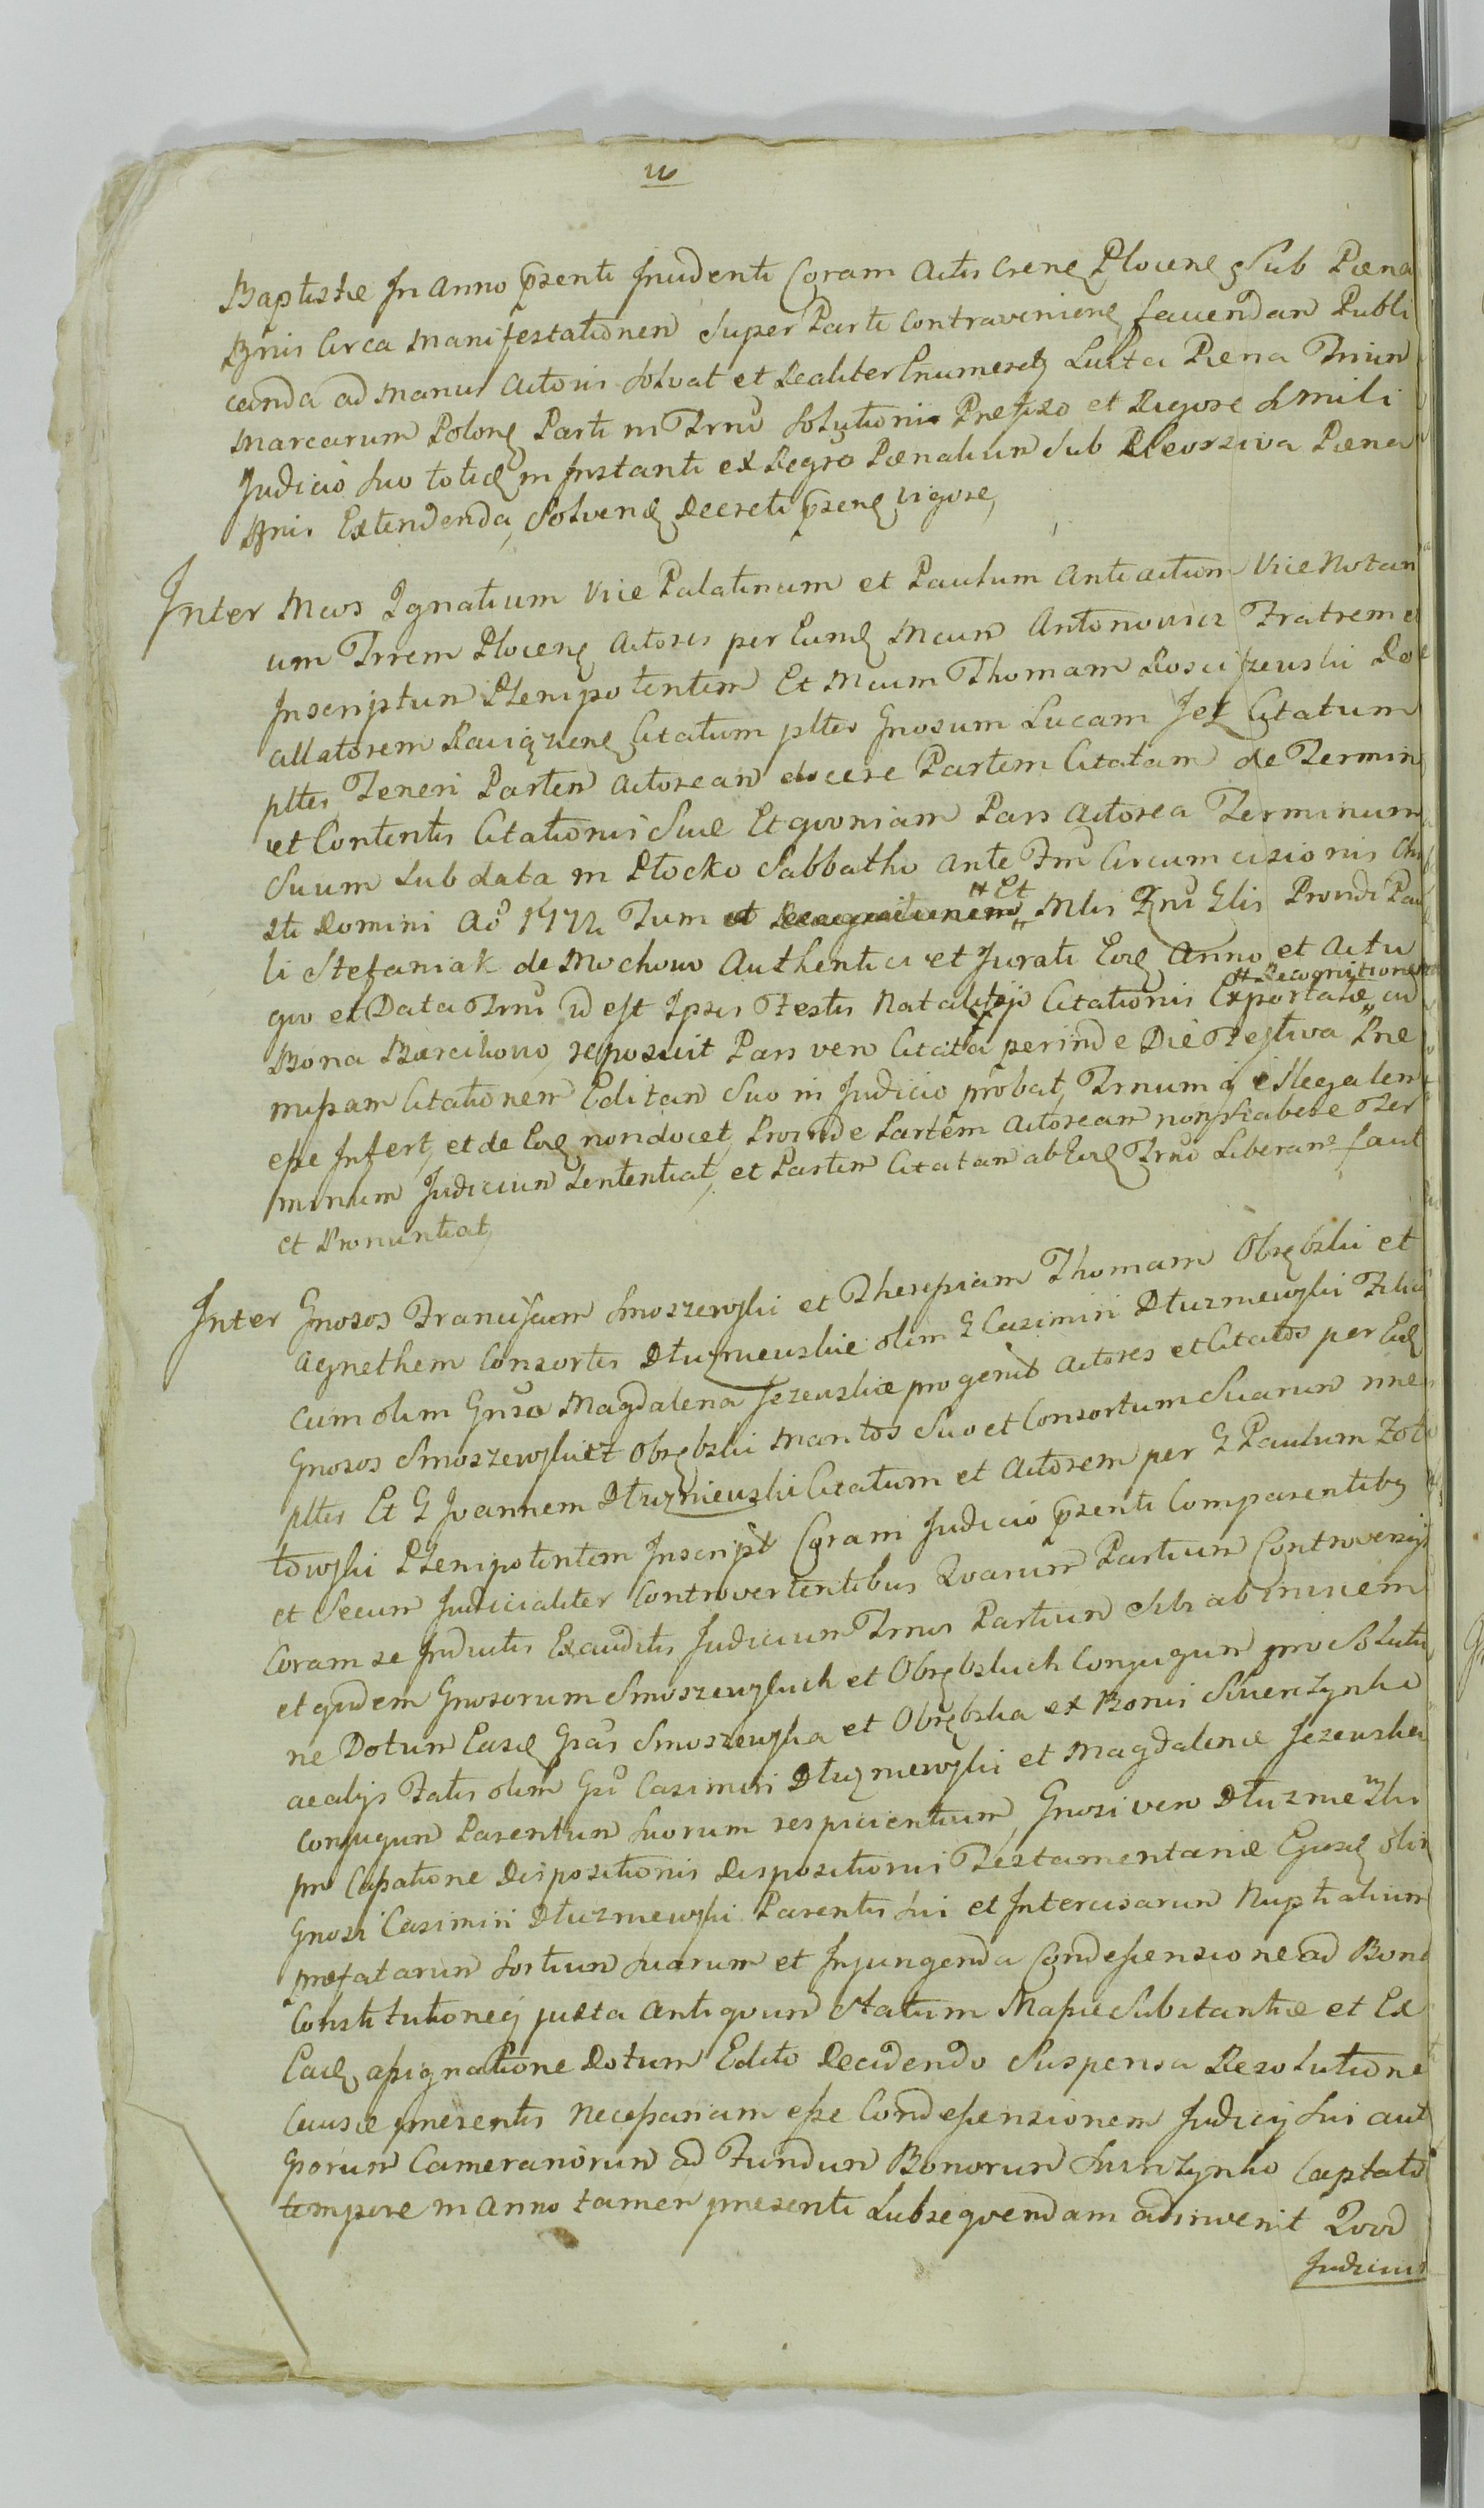 16
Baptistæ In anno pñsenti Incidenti Coram Actis Crens Plocens Sub Pœna
Bñnis Circa Manifestationem super Parte contraveniens faciendam Publi
canda ad manus Actoris solvat et Realiter Enumeret, Luita Pœna Trium
Marcarum Polons Parti in Trno Solutionis Præfixo et Rigore simili
Judicio suo toties in Instanti ex Regro Pœnalium sub Reorsiva Pœna
Bñnis Extendenda, Solvens Decreti pñsens vigore,
Inter Mcos Ignatium Vice Palatinum et Paulum Antiactium Vice Notari
um Trrem Plocens Actores per Eund Mcum Antonowicz Fratrem et
Inscriptum Plenipotentem Et Mcum Thomam Rosciszewski Da
allatorem Raciązens Citatum pltes Gnosum Lucam Jez Citatum
pltes Teneri Partem Actoream docere Partem Citatam de Termin
et Contentis Citationis Suæ Et qvoniam Pars Actorea Terminum
Suum sub data in Płocko Sabbatho ante Fm Circumcisionis Chri
sti Domini Aõ 1772 Tum et Recognitionem # Et Mlis Rni Glis Providi Pau
li Stefaniak de Mochowo Authentici et Jurati Eod Anno et Actu
qvo et Data Trni id est Ipsis Festis Natalitijs Citationis Exportatæ # Recognitionem ad
Bona Barcikowo, reposuit Pars vero Citata perinde Die Festiva Præ
missam Citationem Editam suo in Judicio probat, Trnum q illegalem
esse Infert, et de Eod non docet, Proinde Partem Actoream non habere Ter
minum Judicium Sententiat, et Partem Citatam ab Eod Trno Liberam facit
et Pronuntiat,
Inter Gnosos Franciscum Smoszewski et Theresiam Thomam Obrębski et
Agnethem Consortes Dłuzniewskie olim G Casimiri Dłuzniewski Filias
cum olim Gnosa Magdalena Jezewska progenit Actores et Citatos per Eosd
Gnosos Smoszewski et Obrębski Maritos Suo et Consortum Suarum nne
pltes Et G Joannem Dłuzniewski Citatum et Actorem per G Paulum Zoł
towski Plenipotentem Inscript Coram Judicio pñsenti Comparentibg
et Secum Judicialiter Controvertentibus Qvarum Partium Controversijs
Coram se Inductis Exauditis Judicium Trnos Partium sibi ab invicem
et qvidem Gnosorum Smoszewskich et Obrębskich Conjugum pro Solutio
ne Dotum Eased Gras Smoszewska et Obrębska ex Bonis Swierzynko
ac alijs Fatis olim Gsi Casimiri Dłuzniewski et Magdalenæ Jezewska
Conjugum Parentum suorum respicientium, Gnosi vero Dłuzniewski
pro Cassatione Dispositionis Dispositionis Testamentariæ Ejusd olim
Gnosi Casimiri Dłuzniewski Parentis sui et Intercisarum Nuptialium
præfatarum Sortium suarum et Injungenda Condescensione ad Bona
Constitutioneq juxta Antiqvum Statum Massæ Substantiæ et Ex
Ead assignatione Dotum Edito Decidendo Suspensa Resolutione
Causæ præsentis Necessariam esse Condescensionem Judicij sui aut
Gsorum Camerariorum ad Fundum Bonorum Swierzynko Captato
tempore in Anno tamen præsenti subseqvendam adinvenit Qvod
Judicium